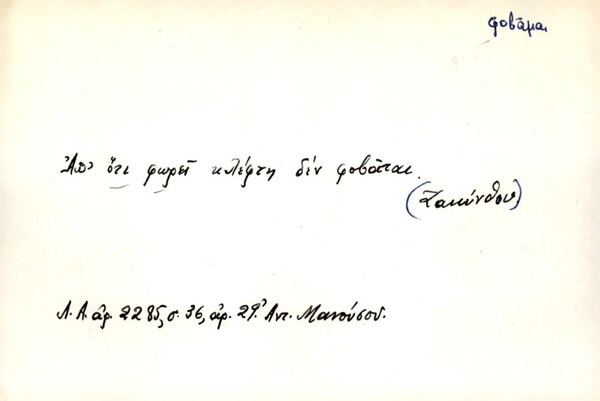 φοβᾶμαι
Ἀπ' ὅτι φωρεῖ κλέφτη δέν φοβᾶται.
(Ζακύνθου)
Λ.Α. ἀρ. 2285, σ. 36, ἀρ. 29. Ἀντ. Μανούσου.